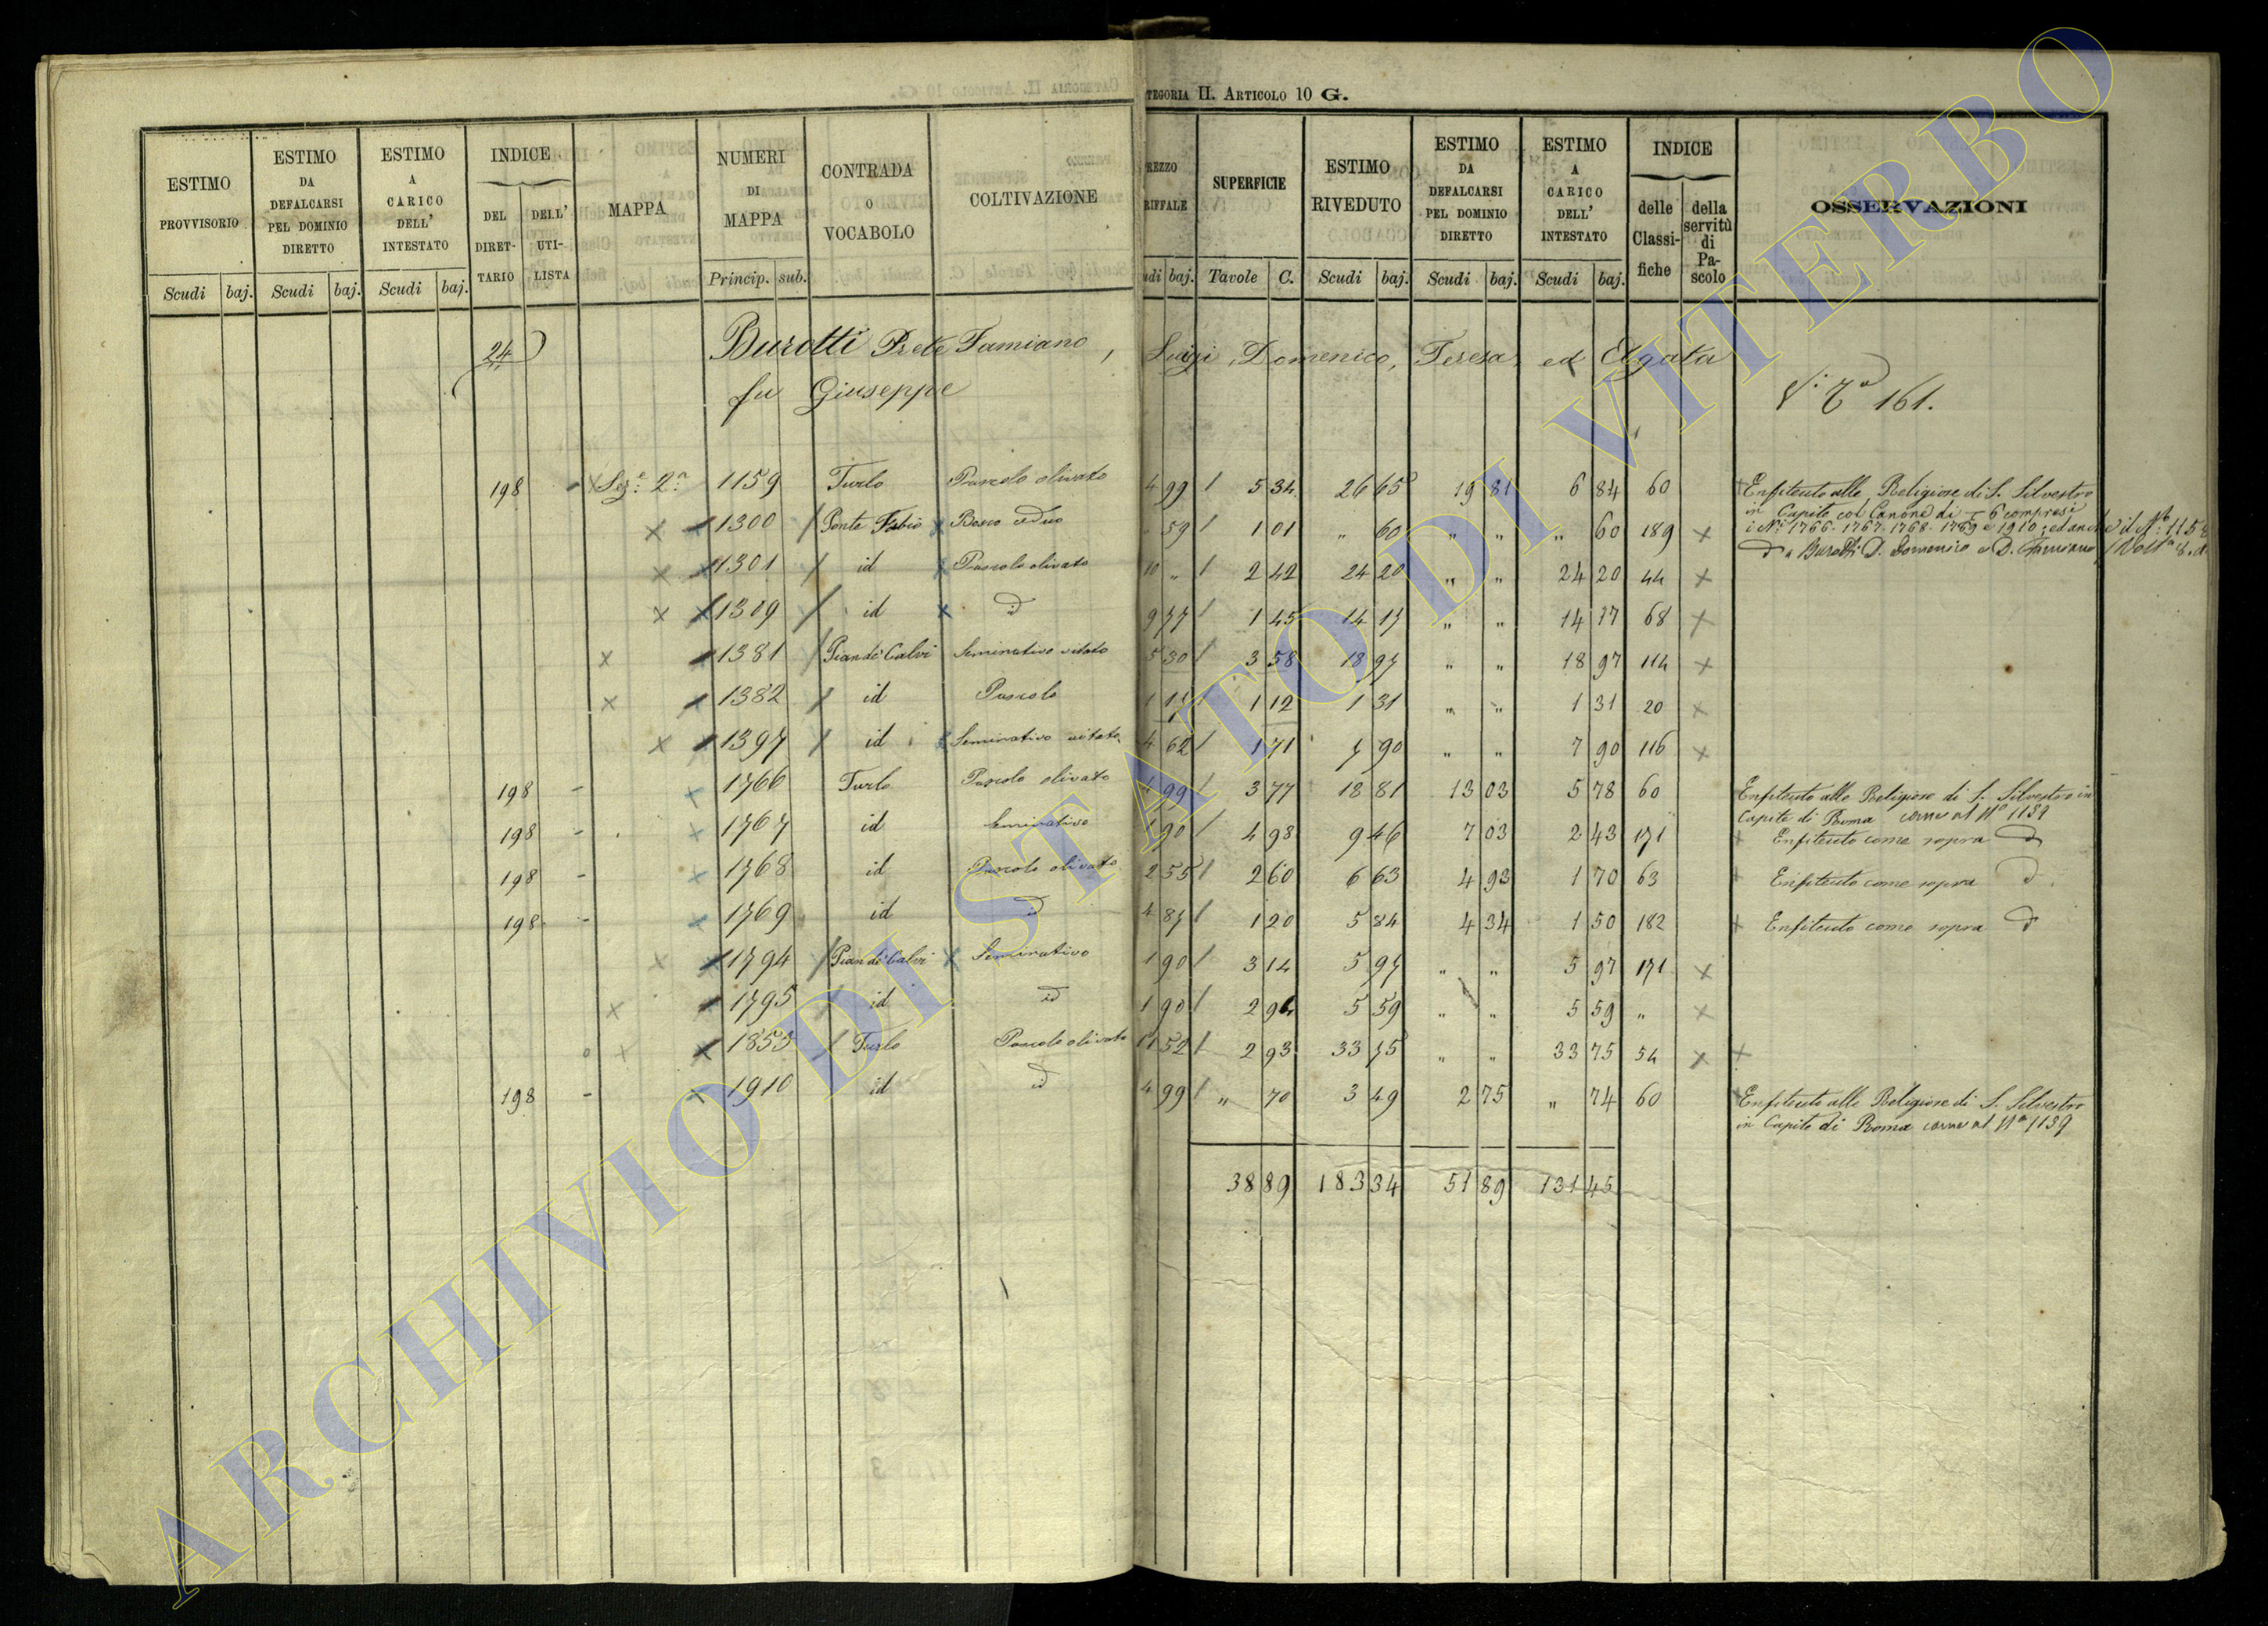 CATEGORIA II. ARTICOLO 10 G.
TEGORIA II. ARTICOLO 10 G.
ESTIMO PROVVISORIO
ESTIMO DA DEFALCARSI PEL DOMINIO DIRETTO
ESTIMO A CARICO DELL' INTESTATO
INDICE
DEL DIRET-TARIO
DELL' UTI-LISTA
MAPPA
NUMERI DI MAPPA
CONTRADA O VOCABOLO
COLTIVAZIONE
REZZO RIFFALE
SUPERFICIE
ESTIMO RIVEDUTO
ESTIMO DA DEFALCARSI PEL DOMINIO DIRETTO
ESTIMO A CARICO DELL' INTESTATO
INDICE
delle Classi-fiche
della servitù di Pa-scolo
OSSERVAZIONI
Scudi baj. Scudi baj. Scudi baj. Princip. sub. udi baj. Tavole C. Scudi baj. Scudi baj. Scudi baj.
24 Burotti Prete Famiano, Luigi, Domenico, Teresa, ed Agata
fu Giuseppe
161.
198 - Sez.e 2.a 1159 Turlo Pascolo olivato 4 99 5 34 26 65 19 81 6 84 60 Enfiteuta alle Religiose di S. Silvestro
in Capite col Canone di 6 compresi
1300 Ponte Fabio Bosco ceduo " 59 1 01 " 60 " " " 60 189 i Ni 1766. 1767. 1768. 1769 e 1910, ed anche il No 1158
Burotti D. Domenico e D. Famiano
1301 id Pascolo olivato 10 " 2 42 24 20 " " 24 20 44
1309 id id 9 77 1 45 14 17 " " 14 17 68
1381 Pian de' Calvi Seminativo vitato 5 30 3 58 18 97 " " 18 97 114
1382 id Pascolo 1 17 1 12 1 31 " " 1 31 20
1397 id Seminativo vitato 4 62 1 71 7 90 " " 7 90 116
198 - 1766 Turlo Pascolo olivato 4 99 3 77 18 81 13 03 5 78 60 Enfiteuta alle Religiose di S. Silvestro in
Capite di Roma come al No 1159
198 - 1767 id Seminativo 1 90 4 98 9 46 7 03 2 43 171 Enfiteuta come sopra
198 - 1768 id Pascolo olivato 2 55 2 60 6 63 4 93 1 70 63 Enfiteuta come sopra
198 - 1769 id id 4 87 1 20 5 84 4 34 1 50 182 Enfiteuta come sopra
1794 Pian de' Calvi Seminativo 1 90 3 14 5 97 " " 5 97 171
1795 id id 1 90 2 94 5 59 " " 5 59 "
1853 Turlo Pascolo olivato 11 52 2 93 33 75 " " 33 75 54
198 - 1910 id id 4 99 " 70 3 49 2 75 " 74 60 Enfiteuta alle Religiose di S. Silvestro
in Capite di Roma come al No 1159
38 89 183 34 51 89 131 45
ARCHIVIO DI STATO DI VITERBO